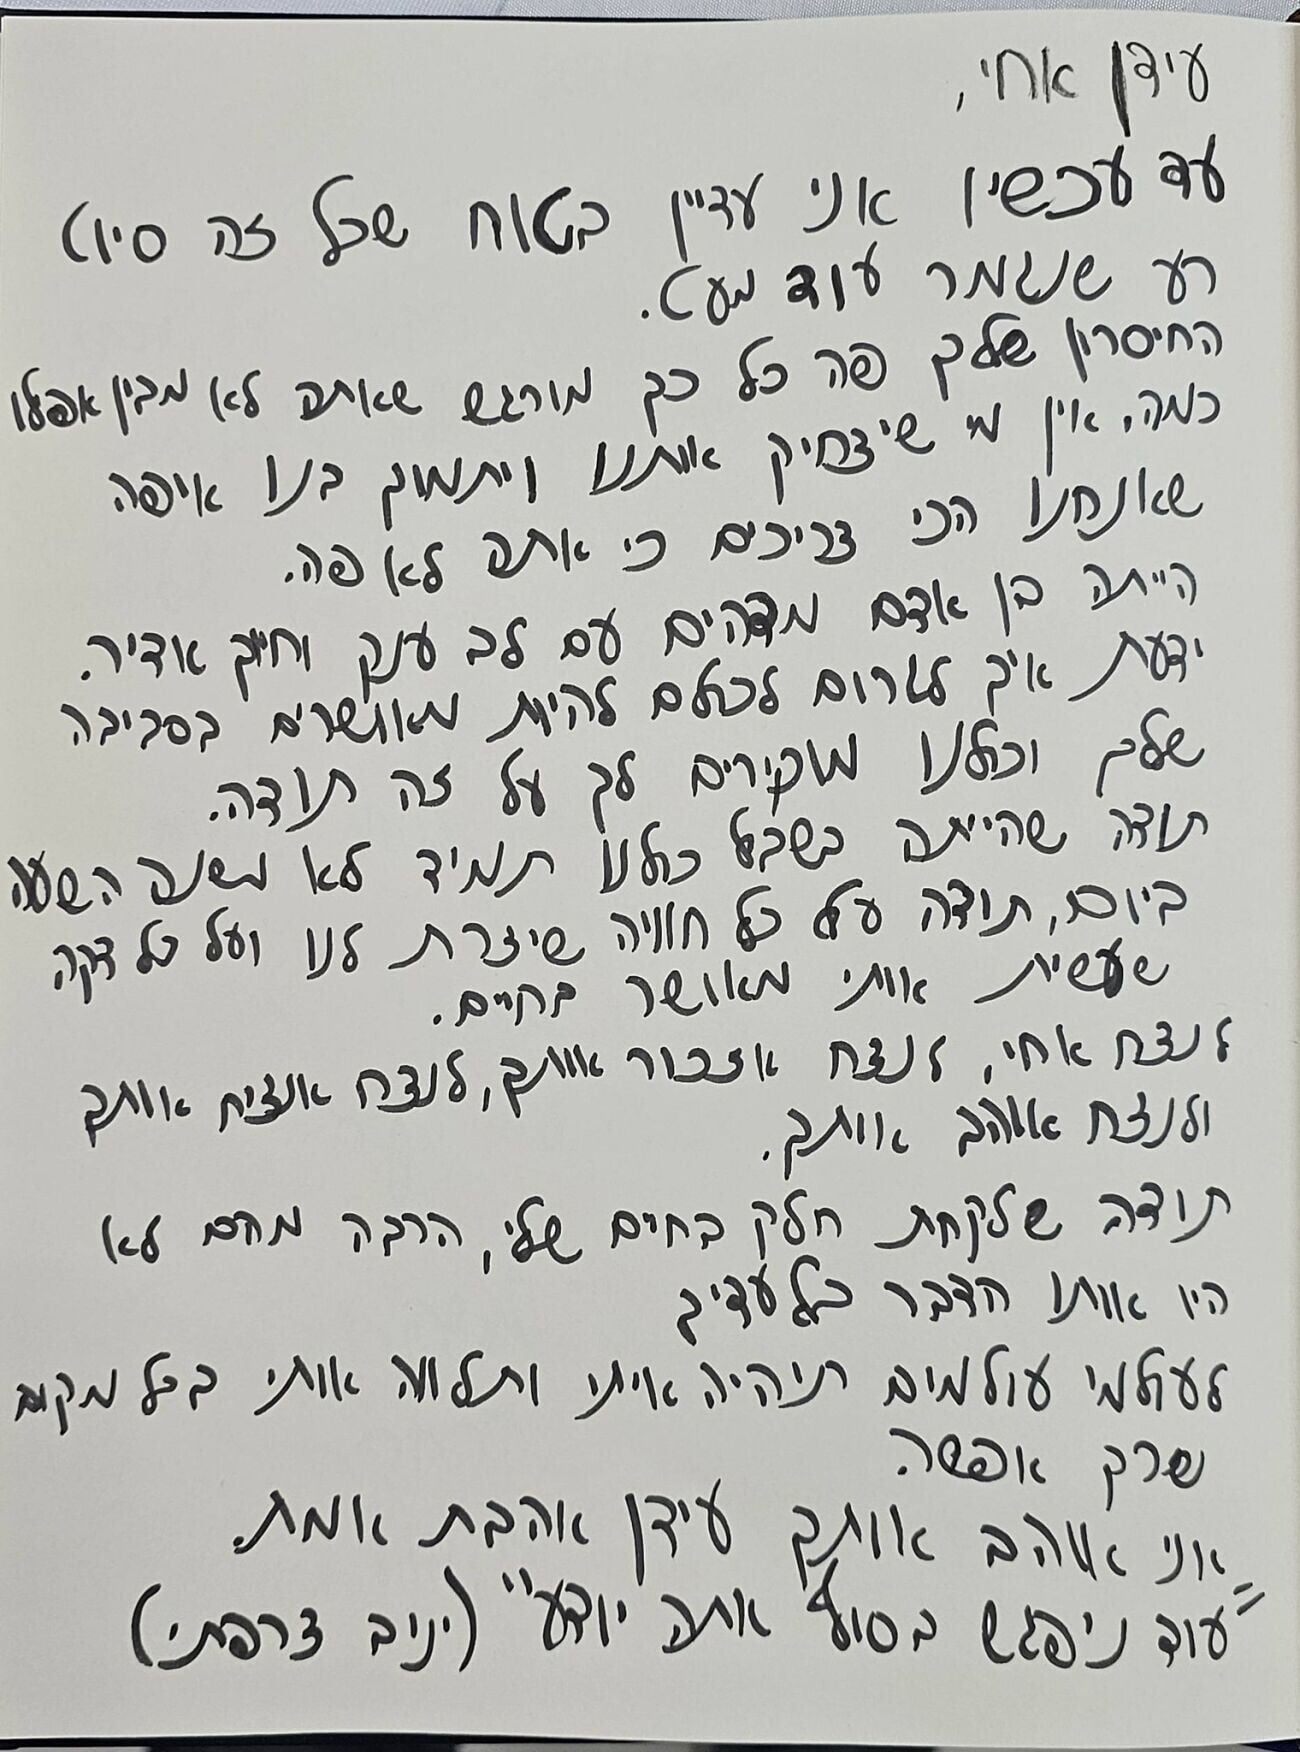 עידן אחי,
עד עכשיו אני עדיין בטוח שכל זה סיוט
רע שנגמר עוד מעט.
החיסרון שלך פה כל כך מורגש שאתה לא מבין אפילו
כמה, אין מי שיצחיק אותנו ויתמוך בנו איפה
שאנחנו הכי צריכים כי אתה לא פה.
הייתה בן אדם מדהים עם לב ענק וחיוך אדיר.
ידעת איך לגרום לכולם להיות מאושרים בסביבה
שלך וכולנו מוקירים לך על זה תודה.
תודה שהייתה בשביל כולנו תמיד לא משנה השעה
ביום, תודה על כל חוויה שיצרת לנו ועל כל דקה
שעשית אותי מאושר בחיים.
לנצח אחי, לנצח אזכור אותך, לנצח אנציח אותך
ולנצח אוהב אותך.
תודה שלקחת חלק בחיים שלי, הרבה מהם לא
היו אותו הדבר בלעדיך
לעולמי עולמים תיהיה איתי ותלווה אותי בכל מקום
שרק אפשר.
אני אוהב אותך עידן אהבת אמת.
"עוד ניפגש בסוף אתה יודע" (יניב צרפתי)